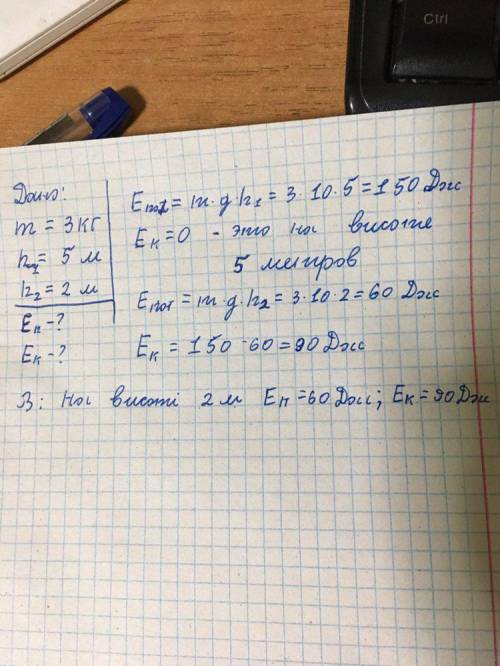 Ctrl
Дано:
m = 3 кг
h₁ = 5 м
h₂ = 2 м
Eп - ?
Eк - ?
Eпот1 = m · g · h₁ = 3 · 10 · 5 = 150 Дж
Eк = 0 - это на висоте
5 метров
Eпот = m · g · h₂ = 3 · 10 · 2 = 60 Дж
Eк = 150 - 60 = 90 Дж
В: На висоті 2 м Eп = 60 Дж; Eк = 90 Дж